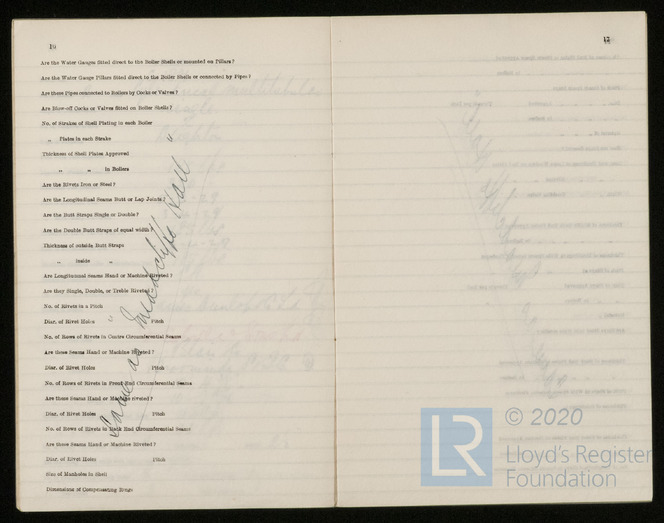 16
Are the Water Gauges fitted direct to the Boiler Shells or mounted on Pillars?
Are the Water Gauge Pillars fitted direct to the Boiler Shells or connected by Pipes?
Are these Pipes connected to Boilers by Cocks or Valves?
Are Blow-off Cocks or Valves fitted on Boiler Shells?
No. of Strakes of Shell Plating in each Boiler
„ Plates in each Strake
Thickness of Shell Plates Approved
„ „ in Boilers
Are the Rivets Iron or Steel?
Are the Longitudinal Seams Butt or Lap Joints?
Are the Butt Straps Single or Double?
Are the Double Butt Straps of equal width?
Thickness of outside Butt Straps
„ inside „
Are Longitudinal Seams Hand or Machine Riveted?
Are they Single, Double, or Treble Riveted?
No. of Rivets in a Pitch
Diar. of Rivet Holes Pitch
No. of Rows of Rivets in Centre Circumferential Seams
Are these Seams Hand or Machine Riveted?
Diar. of Rivet Holes Pitch
No. of Rows of Rivets in Front End Circumferential Seams
Are these Seams Hand or Machine riveted?
Diar. of Rivet Holes Pitch
No. of Rows of Rivets in Back End Circumferential Seams
Are these Seams Hand or Machine Riveted?
Diar. of Rivet Holes Pitch
Size of Manholes in Shell
Dimensions of Compensating Rings
Same as "Hall"
17
LR
© 2020
Lloyd's Register
Foundation